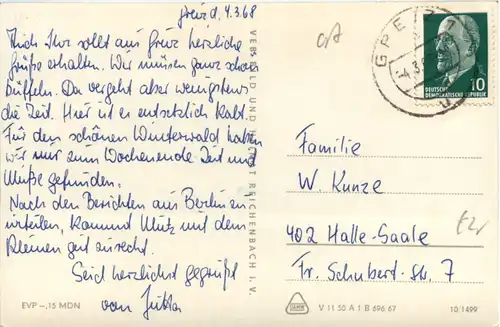 Greiz d. 4.3.68
Auch Ihr sollt aus Greiz herzliche
Grüße erhalten. Wir müssen ganz schön
büffeln. Da vergeht aber wenigstens
die Zeit. Hier ist es entsetzlich kalt.
Für den schönen Winterwald haben
wir nur zum Wochenende Zeit und
Muße gefunden.
Nach den Berichten aus Berlin zu
urteilen, kommt Mutz mit dem
Kleinen gut zurecht.
Seid herzlichst gegrüßt
von Jutta
EVP –,15 MDN
VEB BILD UND HEIMAT REICHENBACH I. V.
GREIZ 1
DEUTSCHE
DEMOKRATISCHE REPUBLIK
10
Familie
W. Kunze
402 Halle-Saale
Fr. Schubert-Str. 7
V 11 50 A 1 B 696 67
10/1499